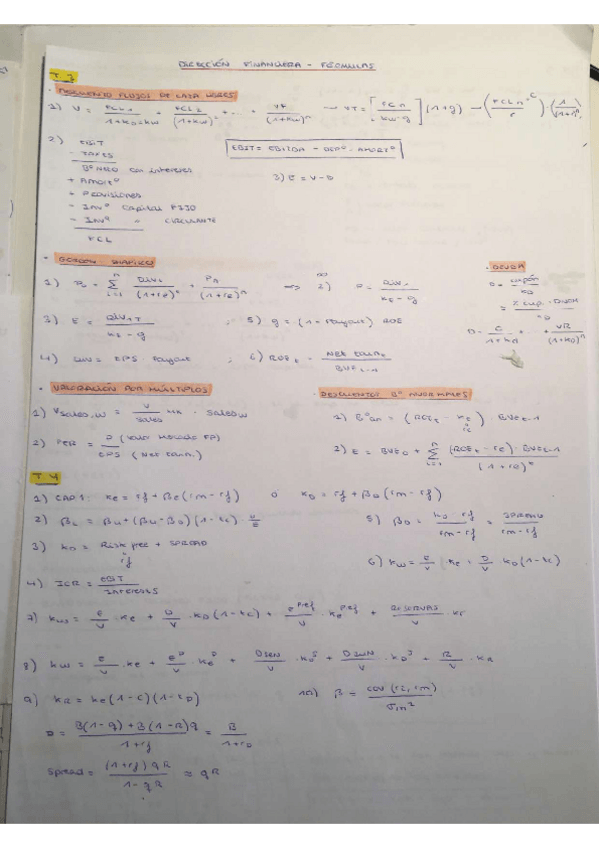 DIRECCIÓN FINANCIERA - FÓRMULAS
T.3
· DESCUENTO FLUJOS DE CAJA LIBRES
1) V = FCL1 / 1+k0=kw + FCL2 / (1+kw)² + ... + VT / (1+kw)^n → VT = [FCLn / kw-g] (1+g) - (FCLn·C / r) · (1 / (1+r)^n)
2) EBIT
- TAXES
Bº NETO con intereses
+ AMORTº
+ PROVISIONES
- INVº CAPITAL FIJO
- INVº " CIRCULANTE
FCL
EBIT = EBITDA - DEPº - AMORTº
3) E = V-D
· GORDON SHAPIRO
1) P0 = Σ i=1 n DIVi / (1+re)^n + Pn / (1+re)^n ⇒ ∞ 2) P = DIV1 / ke-g
3) E = DIV1T / ke-g ; 5) g = (1-Payout) ROE
4) DIV = EPS · Payout ; 6) ROEt = NET EARN.t / BVEt-1
· DEUDA
D = cupón / r0
= % cup. · DEUDA / r0
D = C / 1+kd + ... + VR / (1+kd)^n
· VALORACIÓN POR MÚLTIPLOS
1) Vsales,w = V / Sales · Sales,w
2) PER = P (Valor Mercado FP) / EPS (Net Earn.)
· DESCUENTOS Bº ANORMALES
1) Bºan = (ROEt - ke) · BVEt-1
re
2) E = BVE0 + Σ i=1 n (ROEt - re) · BVEt-1 / (1+re)^t
T.4
1) CAPM: ke = rf + βe (rm-rf) o kD = rf + βD (rm-rf)
2) βL = βu + (βu-βD) (1-tc) · D/E
3) kD = Risk free + SPREAD
rf
4) ICR = EBIT / INTERESES
5) βD = kD-rf / rm-rf = SPREAD / rm-rf
6) kw = E/V · ke + D/V · kD (1-tc)
7) kw = E/V · ke + D/V · kD (1-tc) + E^Pref / V · ke^Pref + RESERVAS / V · kr
8) kw = E/V · ke + E^P / V · ke^P + DSEN / V · kD^S + DSUN / V · kD^S + R/V · kR
9) kR = ke (1-c) (1-tD)
10) β = cov (ri, rm) / σm²
D = B(1-q) + B(1-R)q / 1+rf = B / 1+rD
Spread = (1+rf) qR / 1-qR ≈ qR